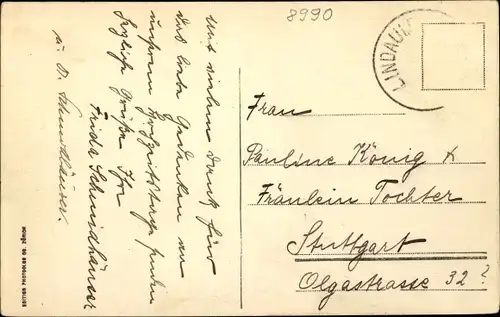 8990
LINDAU
Mit vielem Dank für
das liebe Gedenken an
unseren Hochzeitstage senden
herzliche Grüße Ihre
Frida Schmidhäuser
u. D. Schmidhäuser.
Frau
Pauline König &
Fräulein Tochter
Stuttgart
Olgastrasse 32?
EDITION PHOTOGLOB CO. ZÜRICH